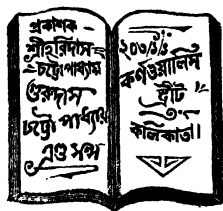 প্রকাশক-
শ্রীহরিদাস
চট্টোপাধ্যায়
গুরুদাস
চট্টোপাধ্যায়
এণ্ড সন্স
২০৩/১/১
কর্ণওয়ালিস
স্ট্রীট
কলিকাতা।